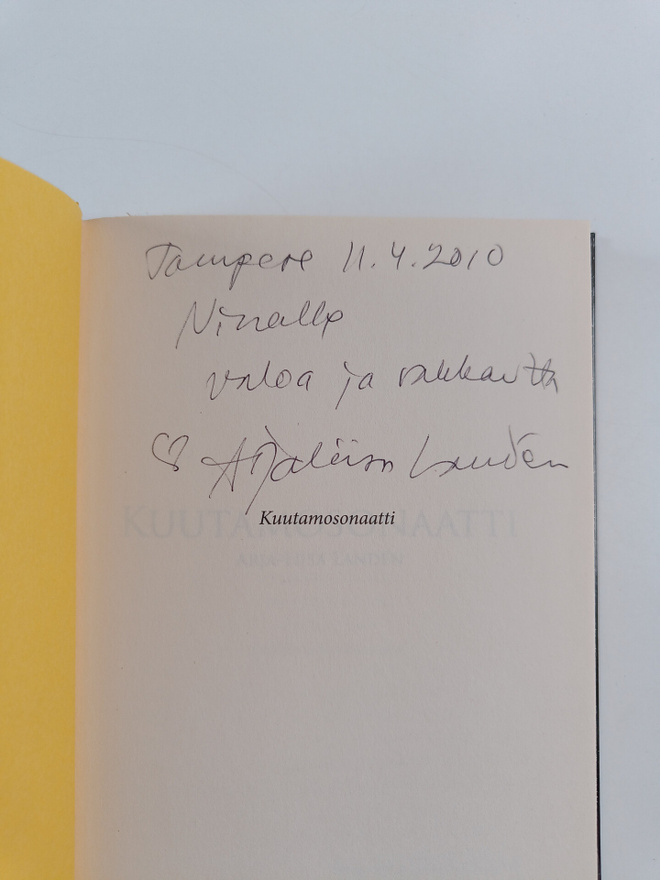 Tampere 11.4.2010
Ninalle
valoa ja rakkautta
♡ Arjaleisa Landén
Kuutamosonaatti
KUUTAMOSONAATTI
ARJA-LIISA LANDEN